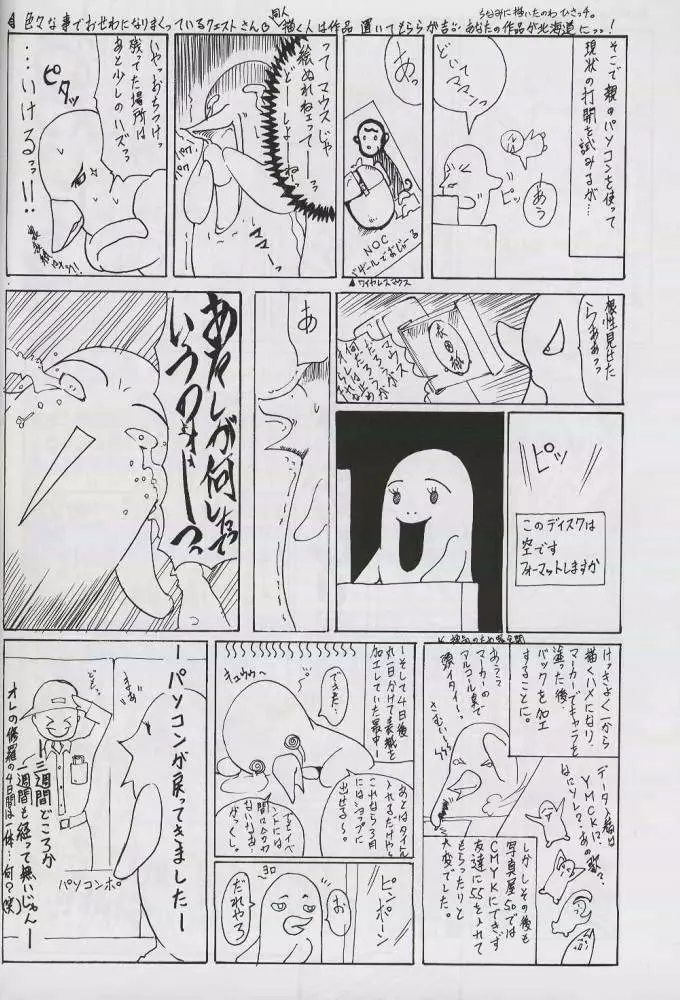 色々な事でおせわになりまくっているクエストさん
描く人は作品
置いてもらうが吉
あなたの作品が北海道にっっ!
そこで親のパソコンを使って
現状の打開を試みるが…
ピッ
あう
どいてママンっ
あっ
NOC
▲ワイヤレスマウス
ってマウスじゃ
絵ぬれねェってー
どーしよー
ママーッ
いやっおちつけっ
残ってた場所は
あと少しのハズっっ
ピタッ
…いけるっっ!!
根性見せた
らぁぁっっ
表図紙
ピッ
このディスクは
空です
フォーマットしますか
あ
あたしが何したって
いうのォーっっ
けっきょく一から
描くハメになり、
マーカーでキャラを
塗った後、
バックを加工
することに。
あうう
マーカーの
アルコール臭で
頭イタイ…
さむいっ
データ入稿は
YMCKに、
しかしその後も
写真屋5.0では
CMYKにできず
友達に5.5を入れて
もらったりと
大変でした。
ーそして4日後
丸一日かけて表紙を
加工していた最中ー
キュウウ
できた…
あとはタイトル
入れるだけやし
これなら3月
にはショップに
出せる〜。
でもイベ
ントには
間に合わない
がっくし。
ピンポーン
お
だれやろ
ーパソコンが戻ってきましたー
まぁぁ
どもっ
パソコンポ
ー三週間どころか
一週間も経って無いじゃんー
オレの修羅の4日間は一体…何?(笑)